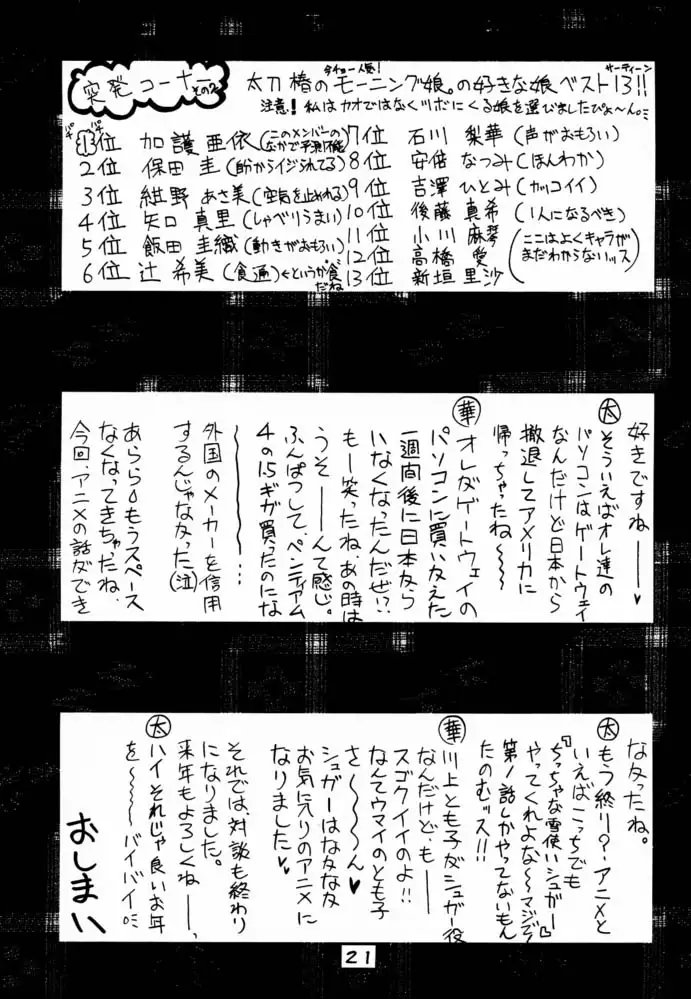 突発コーナー その2
今チョー人気!
サーティーン
太刀椿のモーニング娘。の好きな娘ベスト13!!
注意! 私はカオではなくツボにくる娘を選びましたぴょ〜ん。
1位 加護 亜依(このメンバーのなかで予測不能)
2位 保田 圭(卽からイジられてる)
3位 紺野 あさ美(空気を止めれる)
4位 矢口 真里(しゃべりうまい)
5位 飯田 圭織(動きがおもろい)
6位 辻 希美(食遍)←というか食だね
7位 石川 梨華(声がおもろい)
8位 安倍 なつみ(ほんわか)
9位 吉澤 ひとみ(カッコイイ)
10位 後藤 真希(1人になるべき)
11位 小川 麻琴
12位 高橋 愛
13位 新垣 里沙
(ここはよくキャラがまだわからないッス)
好きですね———♥
太 そういえばオレ達の
パソコンはゲートウェイ
なんだけど日本から
撤退してアメリカに
帰っちゃったね〜〜
華 オレがゲートウェイの
パソコンに買いかえた
一週間後に日本から
いなくなったんだぜ!?
もー笑ったね、あの時は
うそ——んて感じ。
ふんぱつして、ペンティアム
4の1.5ギガ買ったのにな
〜〜〜〜〜…
外国のメーカーを信用
するんじゃなかった(泣)
あらら、もうスペース
なくなってきちゃたね、
今回、アニメの話ができ
なかったね。
太 もう終り?アニメと
いえばこっちでも
『ちっちゃな雪使いシュガー』
やってくれよな〜〜マジで
第1話しかやってないもん
たのむッス!!
華 川上とも子がシュガー役
なんだけども——
スゴクイイのよ!!
なんてウマイのとも子
さ〜〜〜ん♥
シュガーはなかなか
お気に入りのアニメに
なりました♥♥
それでは、対談も終わり
になりました。
来年もよろしくね——、
太 ハイそれじゃ良いお年
を〜〜〜バイバイ
おしまい
21